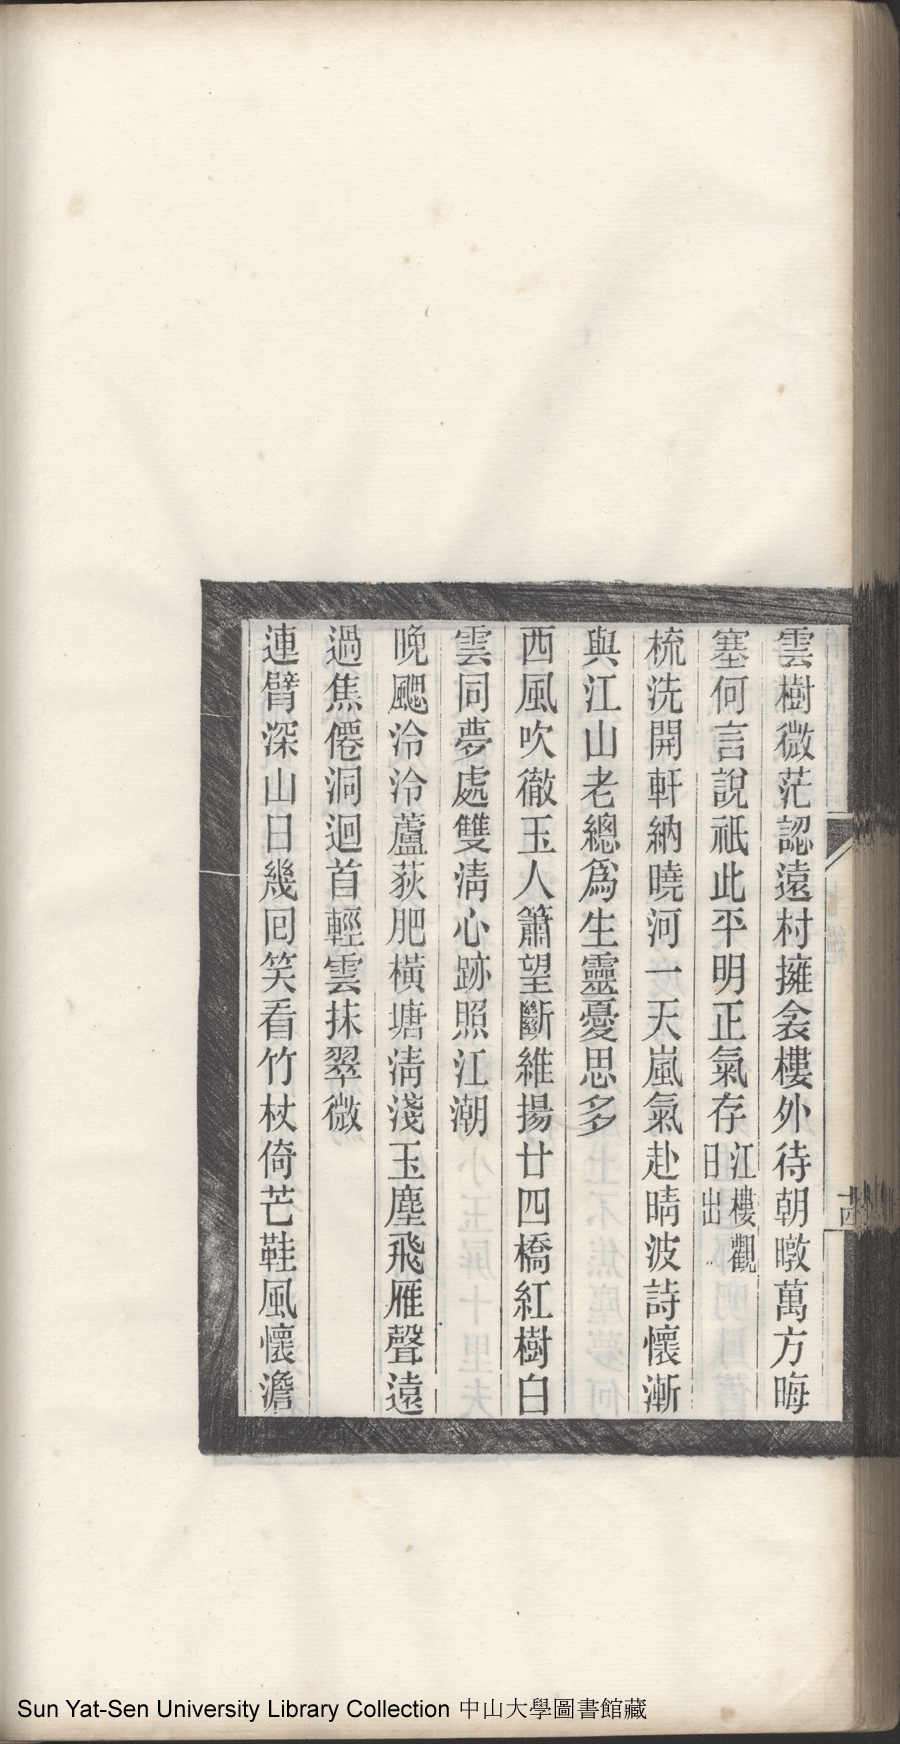 雲樹微茫認遠村擁衾樓外待朝暾萬方晦
塞何言說祇此平明正氣存江樓觀日出
梳洗開軒納曉河一天嵐氣赴晴波詩懷漸
與江山老總爲生靈憂思多
西風吹徹玉人簫望斷維揚廿四橋紅樹白
雲同夢處雙清心跡照江潮
晚颸泠泠蘆荻肥橫塘清淺玉塵飛雁聲遠
過焦僊洞迴首輕雲抹翠微
連臂深山日幾回笑看竹杖倚芒鞋風懷澹
Sun Yat-Sen University Library Collection 中山大學圖書館藏